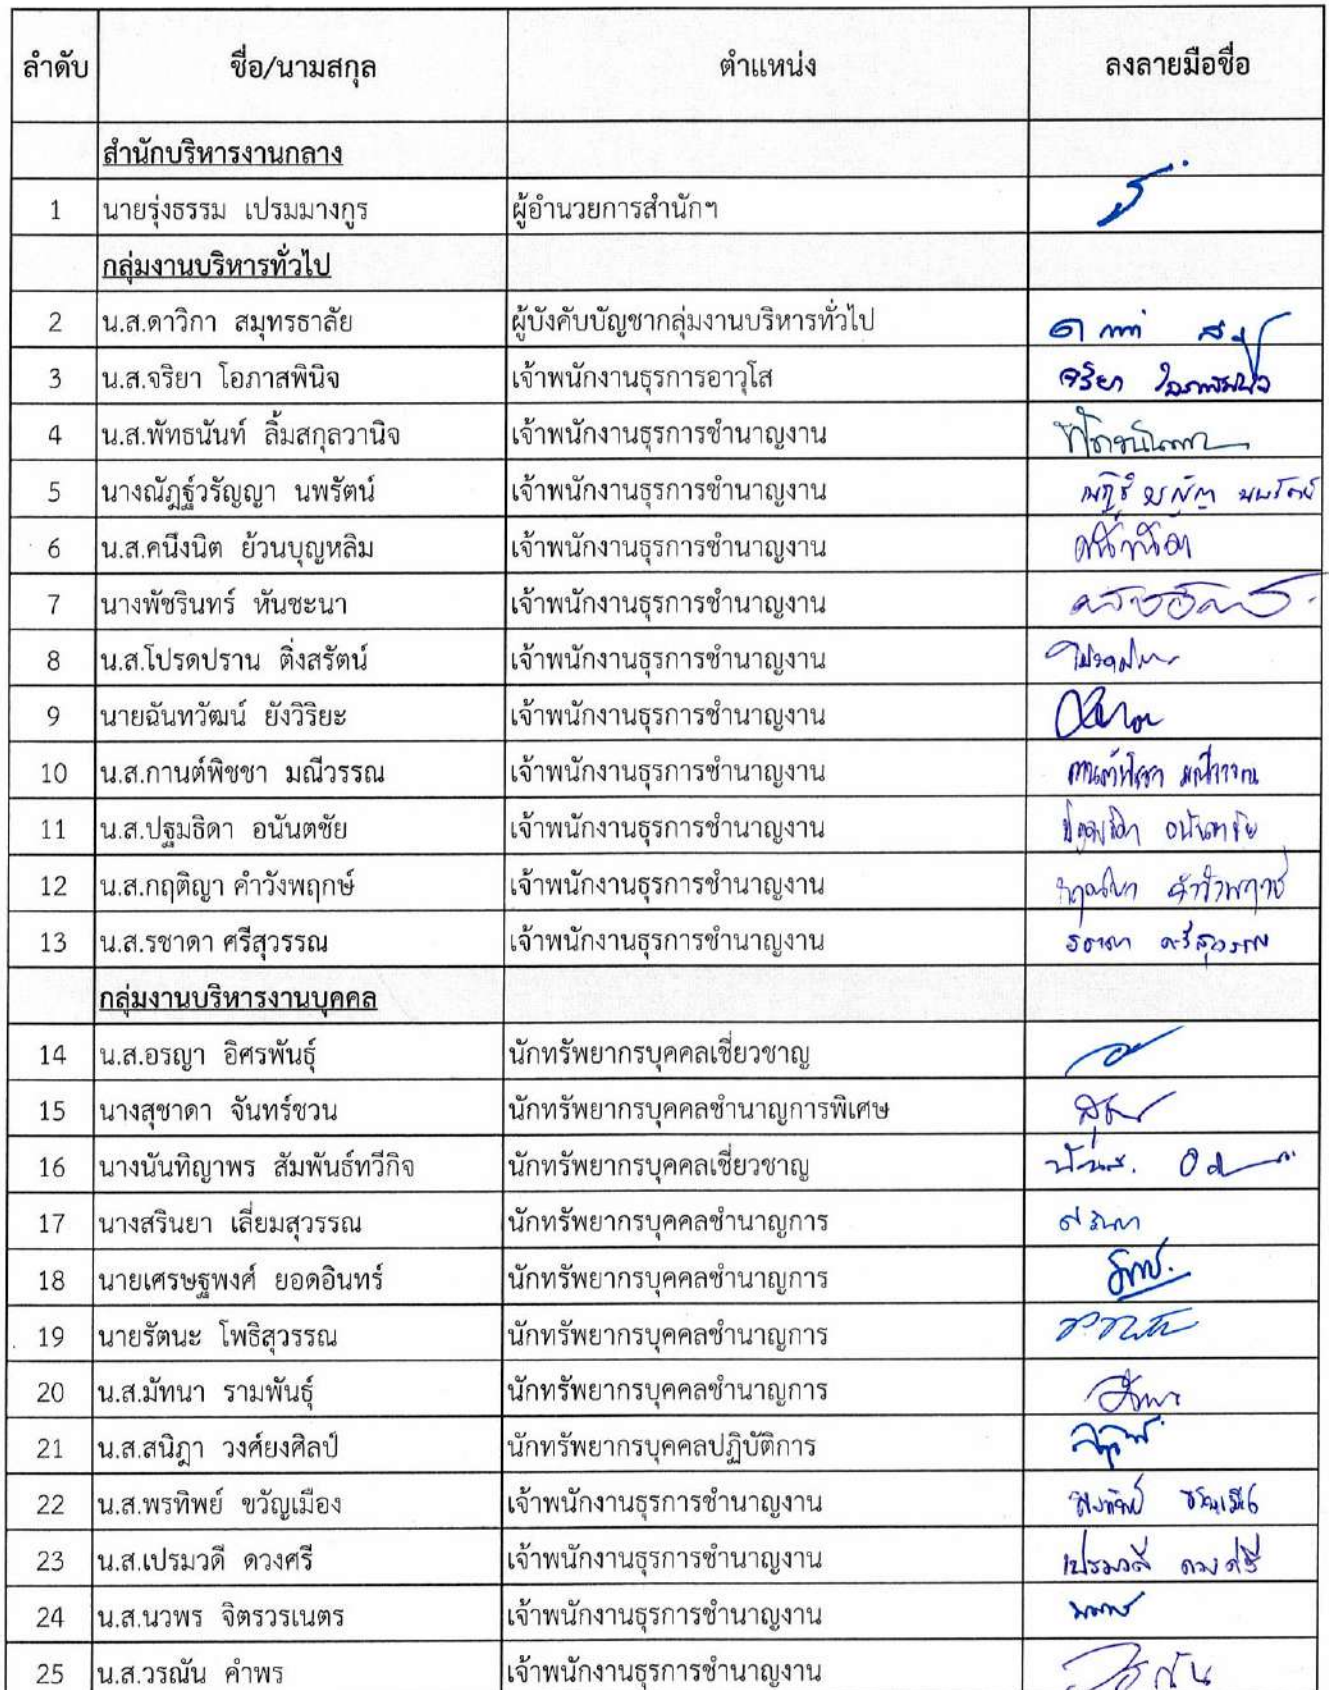 ลำดับ ชื่อ/นามสกุล ตำแหน่ง ลงลายมือชื่อ
สำนักบริหารงานกลาง
1 นายรุ่งธรรม เปรมมางกูร ผู้อำนวยการสำนักฯ
กลุ่มงานบริหารทั่วไป
2 น.ส.ดาวิกา สมุทรธาลัย ผู้บังคับบัญชากลุ่มงานบริหารทั่วไป
3 น.ส.จริยา โอภาสพินิจ เจ้าพนักงานธุรการอาวุโส จริยา โอภาสพินิจ
4 น.ส.พัทธนันท์ ลิ้มสกุลวานิจ เจ้าพนักงานธุรการชำนาญงาน
5 นางณัฎฐ์วรัญญา นพรัตน์ เจ้าพนักงานธุรการชำนาญงาน ณัฎฐ์วรัญญา นพรัตน์
6 น.ส.คนึงนิต ย้วนบุญหลิม เจ้าพนักงานธุรการชำนาญงาน
7 นางพัชรินทร์ หันชะนา เจ้าพนักงานธุรการชำนาญงาน
8 น.ส.โปรดปราน ติ่งสรัตน์ เจ้าพนักงานธุรการชำนาญงาน โปรดปราน
9 นายฉันทวัฒน์ ยังวิริยะ เจ้าพนักงานธุรการชำนาญงาน
10 น.ส.กานต์พิชชา มณีวรรณ เจ้าพนักงานธุรการชำนาญงาน กานต์พิชชา มณีวรรณ
11 น.ส.ปฐมธิดา อนันตชัย เจ้าพนักงานธุรการชำนาญงาน ปฐมธิดา อนันตชัย
12 น.ส.กฤติญา คำวังพฤกษ์ เจ้าพนักงานธุรการชำนาญงาน กฤติญา คำวังพฤกษ์
13 น.ส.รชาดา ศรีสุวรรณ เจ้าพนักงานธุรการชำนาญงาน รชาดา ศรีสุวรรณ
กลุ่มงานบริหารงานบุคคล
14 น.ส.อรญา อิศรพันธุ์ นักทรัพยากรบุคคลเชี่ยวชาญ
15 นางสุชาดา จันทร์ชวน นักทรัพยากรบุคคลชำนาญการพิเศษ
16 นางนันทิญาพร สัมพันธ์ทวีกิจ นักทรัพยากรบุคคลเชี่ยวชาญ
17 นางสรินยา เลี่ยมสุวรรณ นักทรัพยากรบุคคลชำนาญการ สรินยา
18 นายเศรษฐพงศ์ ยอดอินทร์ นักทรัพยากรบุคคลชำนาญการ
19 นายรัตนะ โพธิสุวรรณ นักทรัพยากรบุคคลชำนาญการ
20 น.ส.มัทนา รามพันธุ์ นักทรัพยากรบุคคลชำนาญการ
21 น.ส.สนิฎา วงศ์ยงศิลป์ นักทรัพยากรบุคคลปฏิบัติการ
22 น.ส.พรทิพย์ ขวัญเมือง เจ้าพนักงานธุรการชำนาญงาน พรทิพย์ ขวัญเมือง
23 น.ส.เปรมวดี ดวงศรี เจ้าพนักงานธุรการชำนาญงาน เปรมวดี ดวงศรี
24 น.ส.นวพร จิตรวรเนตร เจ้าพนักงานธุรการชำนาญงาน นวพร
25 น.ส.วรณัน คำพร เจ้าพนักงานธุรการชำนาญงาน วรณัน